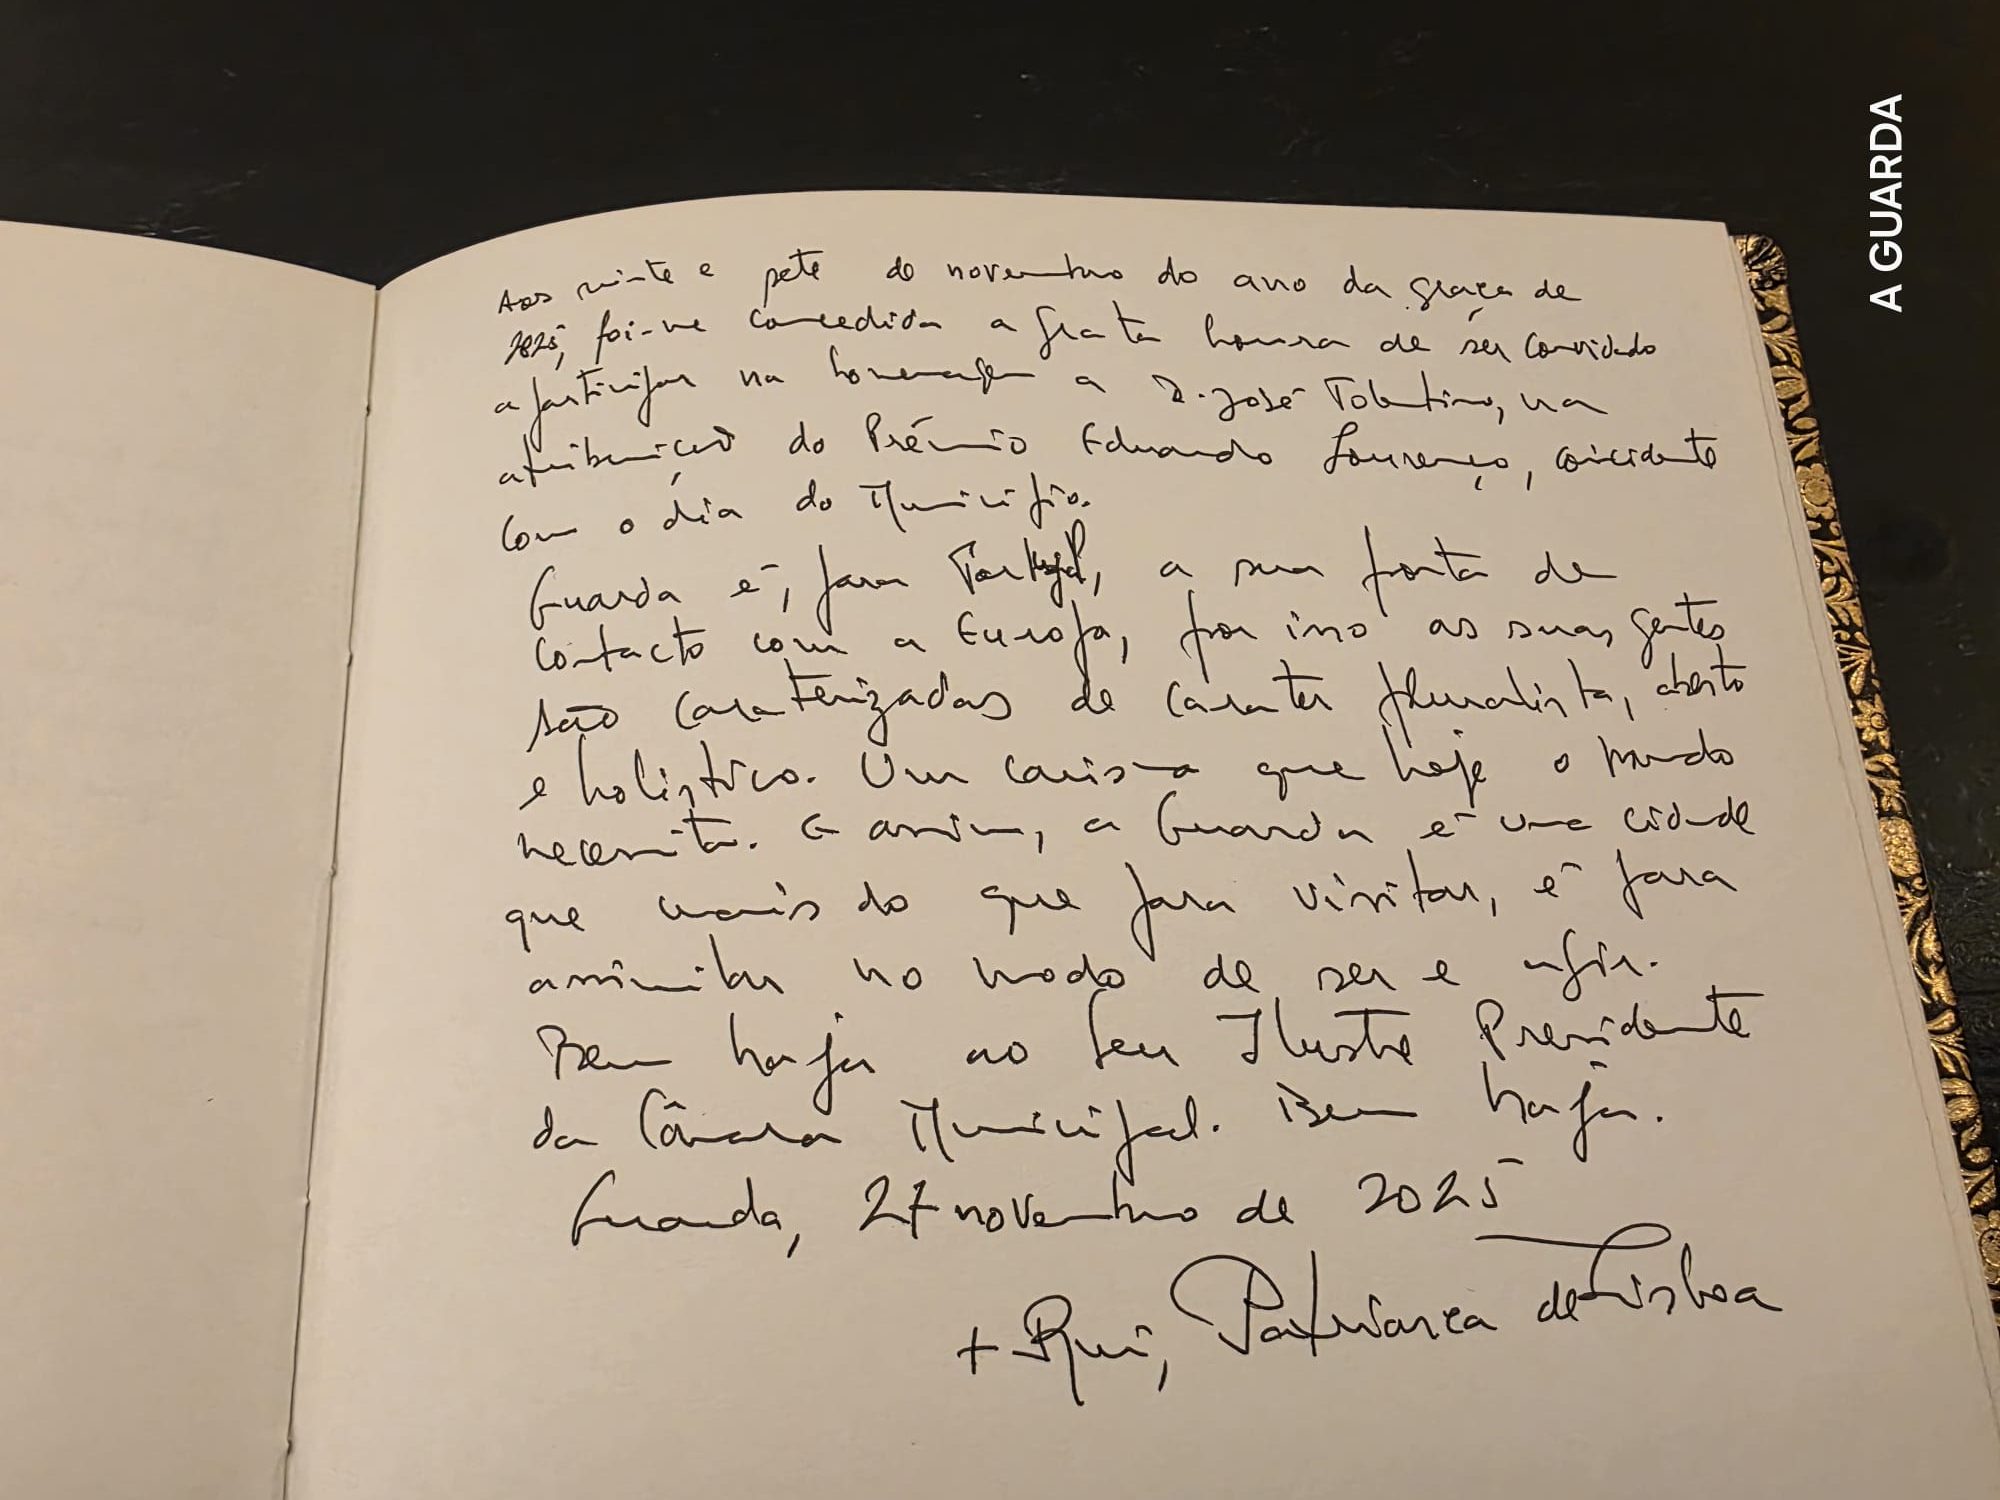 Aos vinte e sete de novembro do ano da graça de
2025, foi-me concedida a grata honra de ser convidado
a participar na homenagem a D. José Tolentino, na
atribuição do Prémio Eduardo Lourenço, coincidente
com o dia do Município.
Guarda é, para Portugal, a sua porta de
contacto com a Europa, por isso as suas gentes
são caraterizadas de carater pluralista, aberto
e holístico. Um carisma que hoje o mundo
necessita. E assim, a Guarda é uma cidade
que mais do que para visitar, é para
assimilar no modo de ser e agir.
Bem haja ao seu Ilustre Presidente
da Câmara Municipal. Bem haja.
Guarda, 27 novembro de 2025
+ Rui, Patriarca de Lisboa
A GUARDA